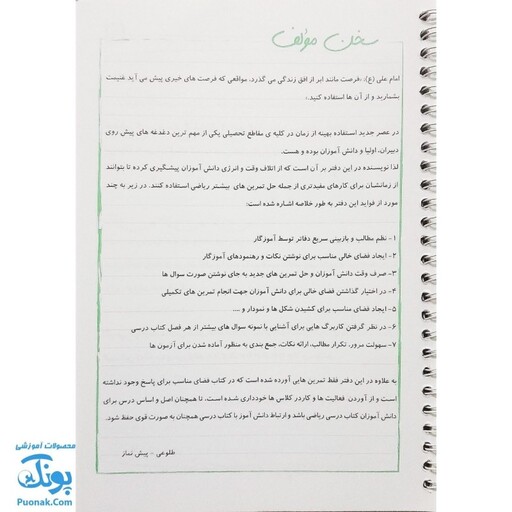 سخن مؤلف
امام علی (ع): «فرصت مانند ابر از افق زندگی می گذرد. مواقعی که فرصت های خیری پیش می آید غنیمت
بشمارید و از آن ها استفاده کنید.»
در عصر جدید استفاده بهینه از زمان در کلیه ی مقاطع تحصیلی یکی از مهم ترین دغدغه های پیش روی
دبیران، اولیا و دانش آموزان بوده و هست.
لذا نویسنده در این دفتر بر آن است که از اتلاف وقت و انرژی دانش آموزان پیشگیری کرده تا بتوانند
از زمانشان برای کارهای مفیدتری از جمله حل تمرین های بیشتر ریاضی استفاده کنند. در زیر به چند
مورد از فواید این دفتر به طور خلاصه اشاره شده است:
۱- نظم مطالب و بازبینی سریع دفاتر توسط آموزگار
۲- ایجاد فضای خالی مناسب برای نوشتن نکات و رهنمودهای آموزگار
۳- صرف وقت دانش آموزان و حل تمرین های جدید به جای نوشتن صورت سوال ها
۴- در اختیار گذاشتن فضای خالی برای دانش آموزان جهت انجام تمرین های تکمیلی
۵- ایجاد فضای مناسب برای کشیدن شکل ها و نمودار و ....
۶- در نظر گرفتن کاربرگ هایی برای آشنایی با نمونه سوال های بیشتر از هر فصل کتاب درسی
۷- سهولت مرور، تکرار مطالب، ارائه نکات، جمع بندی به منظور آماده شدن برای آزمون ها
به علاوه در این دفتر فقط تمرین هایی آورده شده است که در کتاب فضای مناسب برای پاسخ وجود نداشته
است و از آوردن فعالیت ها و کاردر کلاس ها خودداری شده است. تا همچنان اصل و اساس درس برای
دانش آموزان کتاب درسی ریاضی باشد و ارتباط دانش آموز با کتاب درسی همچنان به صورت قوی حفظ شود.
طلوعی - پیش نماز
محصولات آموزشی
پونک
Puonak.Com